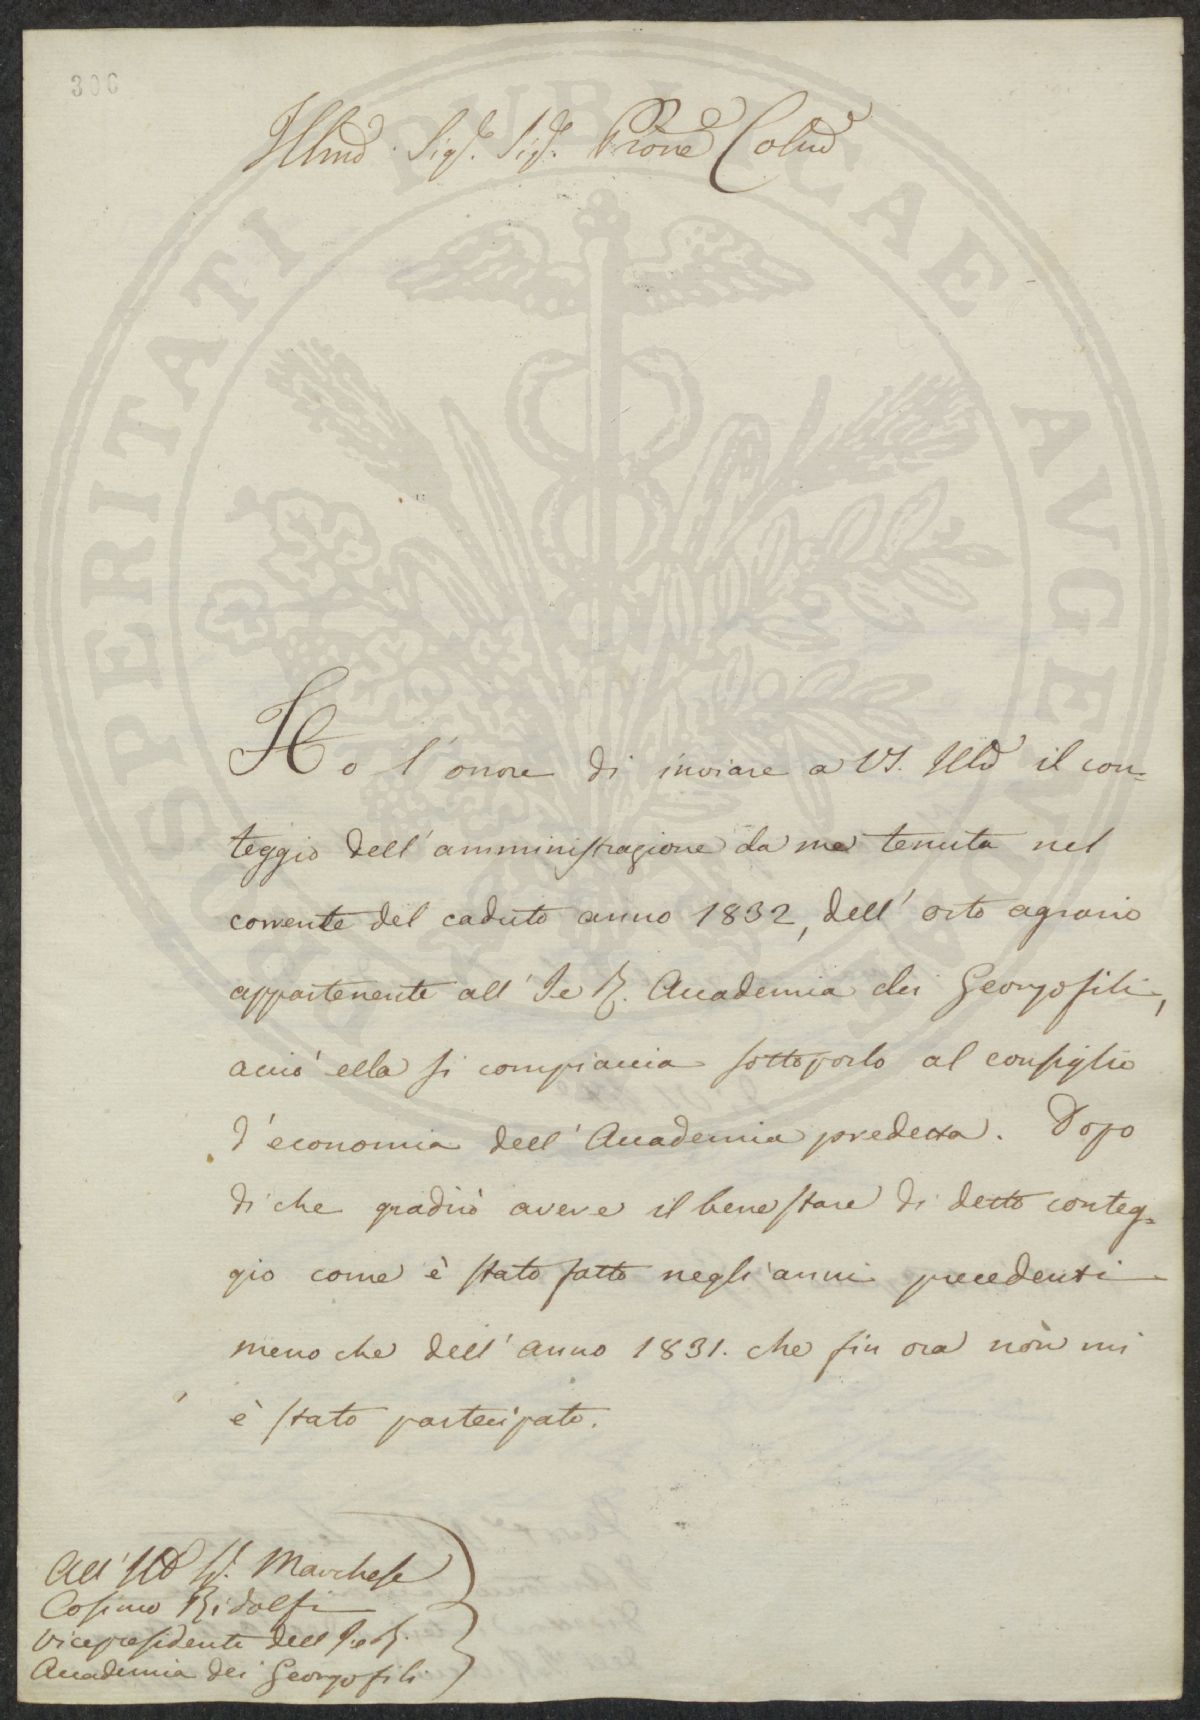 306
Illmo Sigr. Sigr. Prone Colmo
Ho l'onore di inviare a VS. Illa il con=
teggio dell'amministrazione da me tenuta nel
corrente del caduto anno 1832, dell'orto agrario
appartenente all'I e R. Accademia dei Georgofili,
acciò ella si compiaccia sottoporlo al consiglio
d'economia dell'Accademia predetta. Dopo
di che gradirò avere il bene stare di detto conteg=
gio come è stato fatto negli anni precedenti
meno che dell'anno 1831. che fin ora non mi
è stato partecipato.
All'Illo Sigr. Marchese
Cosimo Ridolfi
Vicepresidente dell'I e R.
Accademia dei Georgofili
PROSPERITATI PUBLICAE AVGENDAE